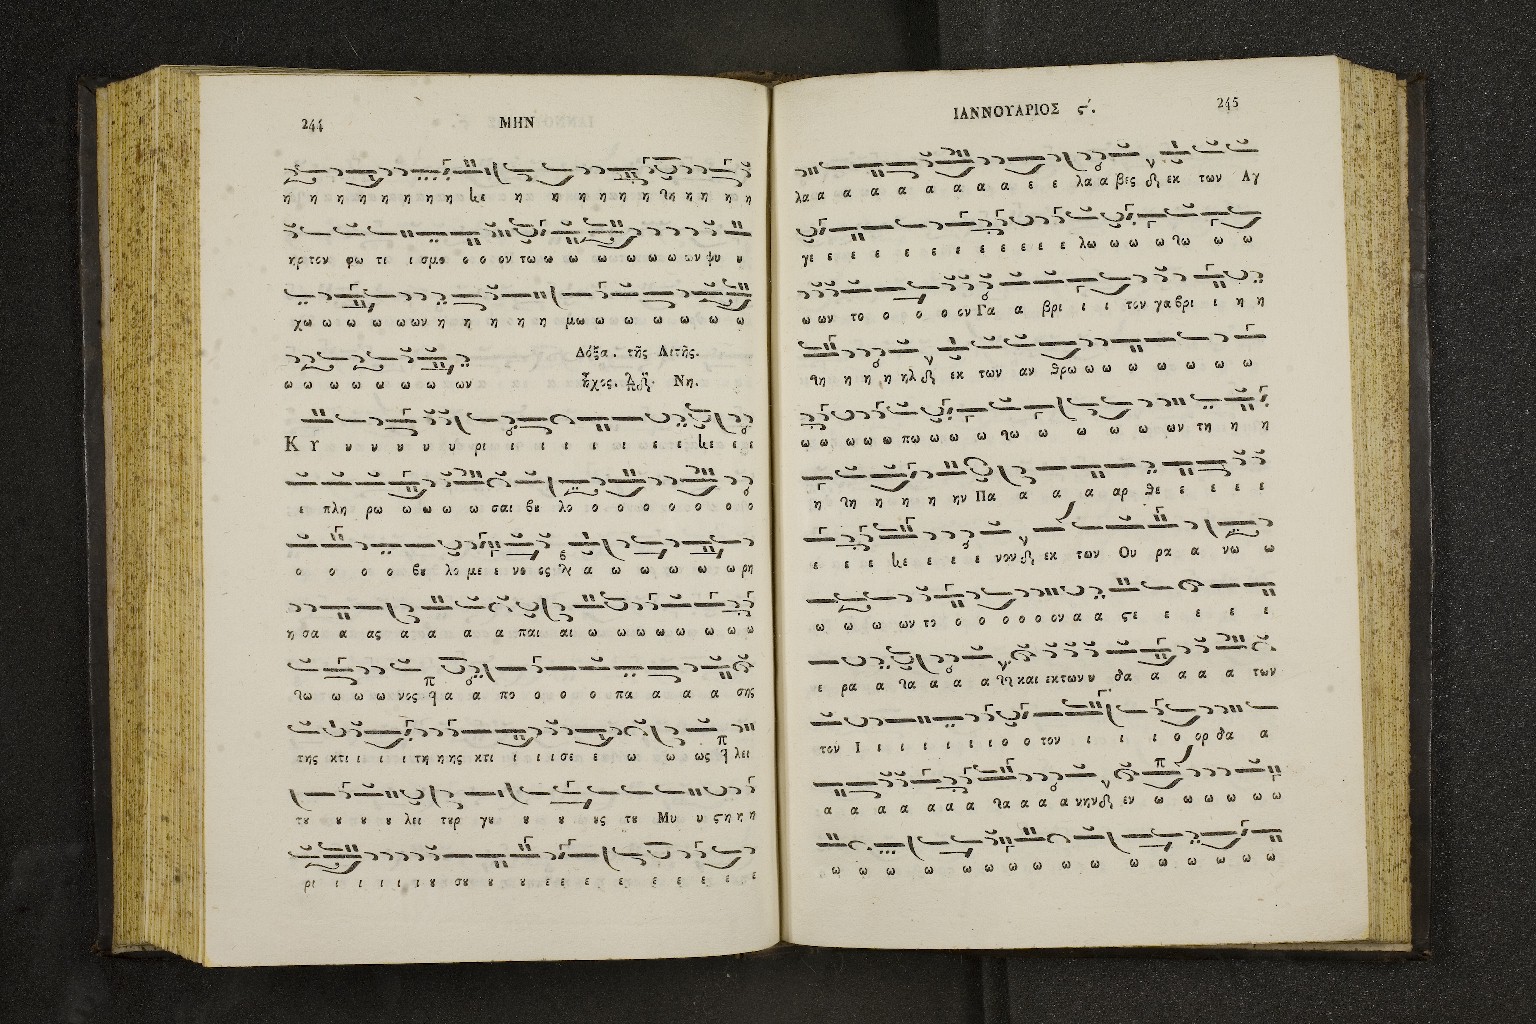 244 ΜΗΝ
η η η η η η η η η κε η η η η η η τη η η η η
ηρ τον φω τι ι σμο ο ο ον τω ω ω ω ω ω ω ων ψυ υ
χω ω ω ω ω ων η η η η η μω ω ω ω ω ω ω
Δόξα. τῆς Λιτῆς.
ω ω ω ω ω ω ω ων ἦχος. Νη.
Κ Υ υ υ υ υ υ ρι ι ι ι ι ι ε ε κε ε ε
ε πλη ρω ω ω ω ω σαι βȣ λο ο ο ο ο ο ο ο
ο ο ο ο βȣ λο με ε νο ος α ω ω ω ω ω ρη
η σα α ας α α α α παι αι ω ω ω ω ω ω ω ω
τω ω ω ω νος α α πο ο ο ο πα α α α σης
της κτι ι ι ι τη η ης κτι ι ι ι σε ε ω ω ως λει
τȣ ȣ ȣ ȣ λει τȣρ γȣ ȣ ȣ ȣ ȣς τȣ Μυ υ ϛη η η
ρι ι ι ι ι ι ȣ σȣ ȣ ȣ ε ε ε ε ε ε ε ε ε
ΙΑΝΝΟΥΑΡΙΟΣ ϛ΄. 245
λα α α α α α α α α ε ε λα α βες εκ των Αγ
γε ε ε ε ε ε ε ε ε ε ε λω ω ω ω τω ω ω
ω ων το ο ο ο ον Γα α βρι ι ι τον γα βρι ι η η
τη η η η ηλ εκ των αν θρω ω ω ω ω ω ω ω
ω ω ω ω ω πω ω ω ω τω ω ω ω ω ω ων τη η η
η τη η η η ην Πα α α α αρ θε ε ε ε ε
ε ε ε κε ε ε ε νον εκ των Ου ρα α νω ω
ω ω ω ων το ο ο ο ο ο ον α α ϛε ε ε ε ε
ε ρα α τα α α α α και εκ των υ δα α α α α των
τον Ι ι ι ι ι ι ι ο ο τον ι ι ι ο ορ δα α
α α α α α α α τα α α α νην εν ω ω ω ω ω ω
ω ω ω ω ω ω ω ω ω ω ω ω ω ω ω ω ω